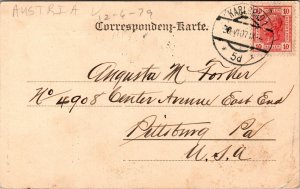 AUSTRIA
12-6-79
Correspondenz-Karte.
KARLSBAD
10 10
5d
Augusta M Forker
No 4908 Center Avenue East End
Pittsburg Pa
U.S.A